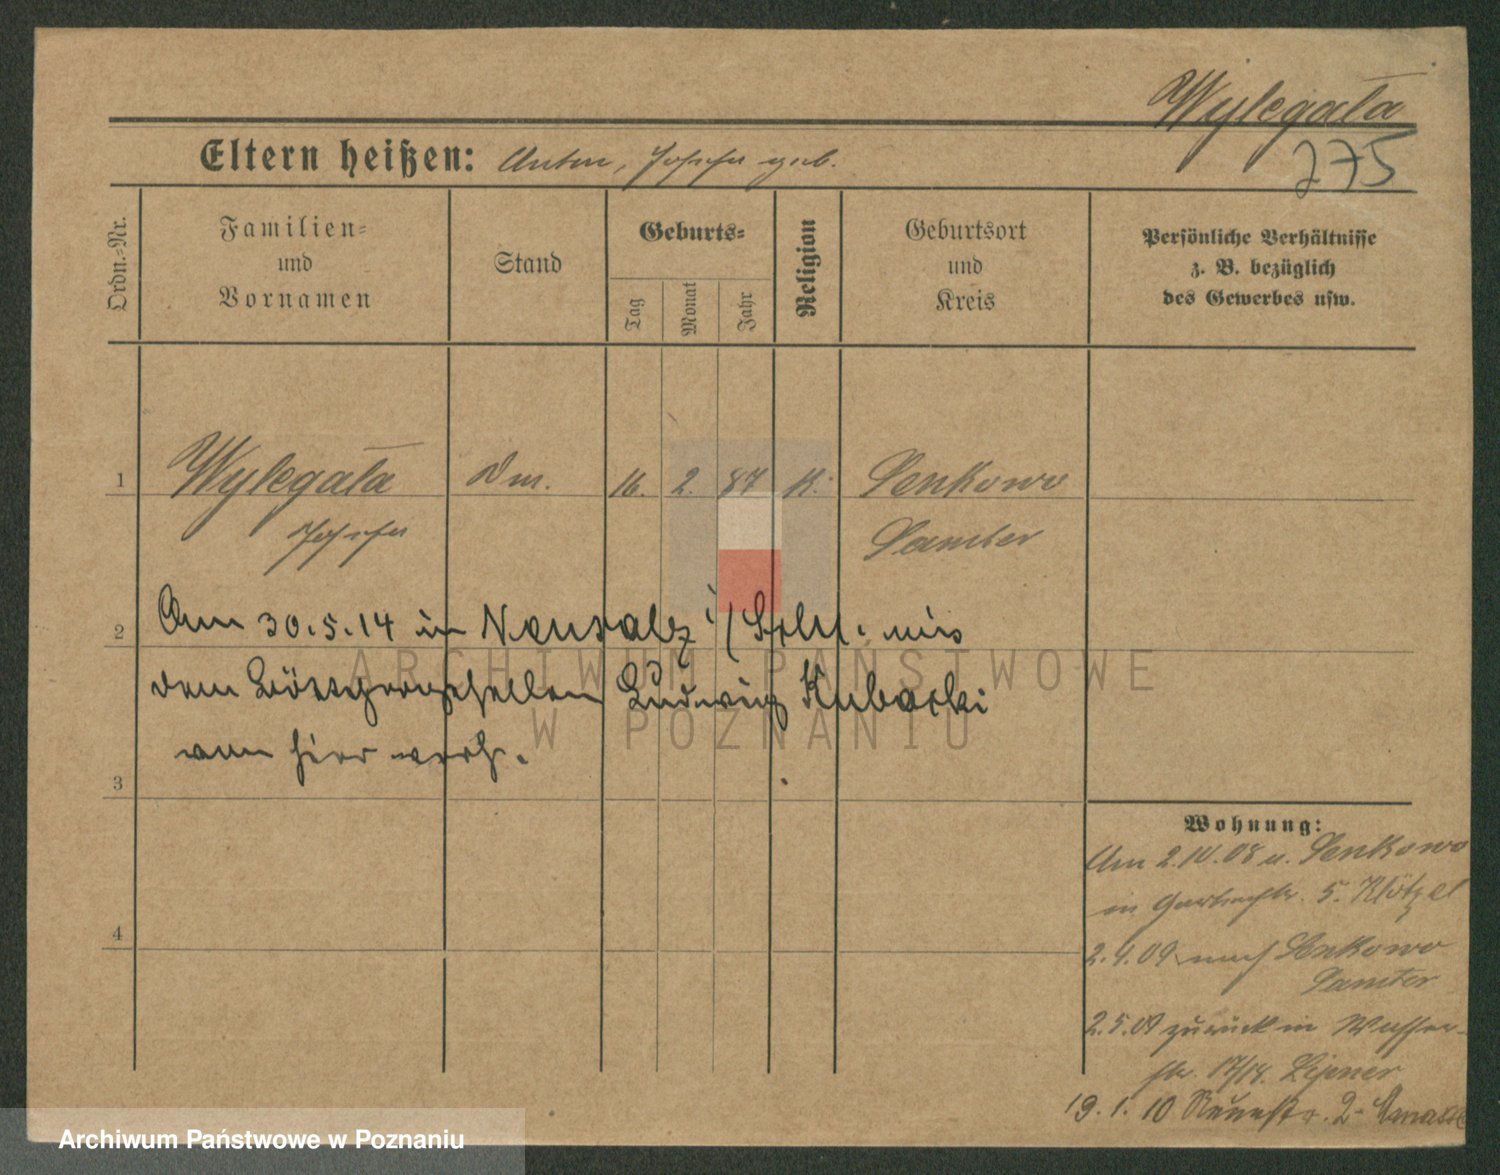 Wylegała
275
Eltern heißen: Anton, Josefa geb.
Ordn.=Nr.
Familien=
und
Vornamen
Stand
Geburts=
Tag
Monat
Jahr
Religion
Geburtsort
und
Kreis
Persönliche Verhältnisse
z. B. bezüglich
des Gewerbes usw.
1 Wylegała Dm. 16. 2. 87 K. Senkowo
Josefa Samter
2 Am 30.5.14 in Neusalz i/Schl. mit
ARCHIWUM PAŃSTWOWE
dem Böttchergesellen Ludwig Kubacki
W POZNANIU
von hier verh.
3
Wohnung:
Am 2.10.08 v. Senkowo
in 5. Klötzel
4
2.4.09 nach Senkowo
Samter
2.5.09 zurück in Wasser-
str. 17/18.
19.1.10 Neuestr. 2
Archiwum Państwowe w Poznaniu